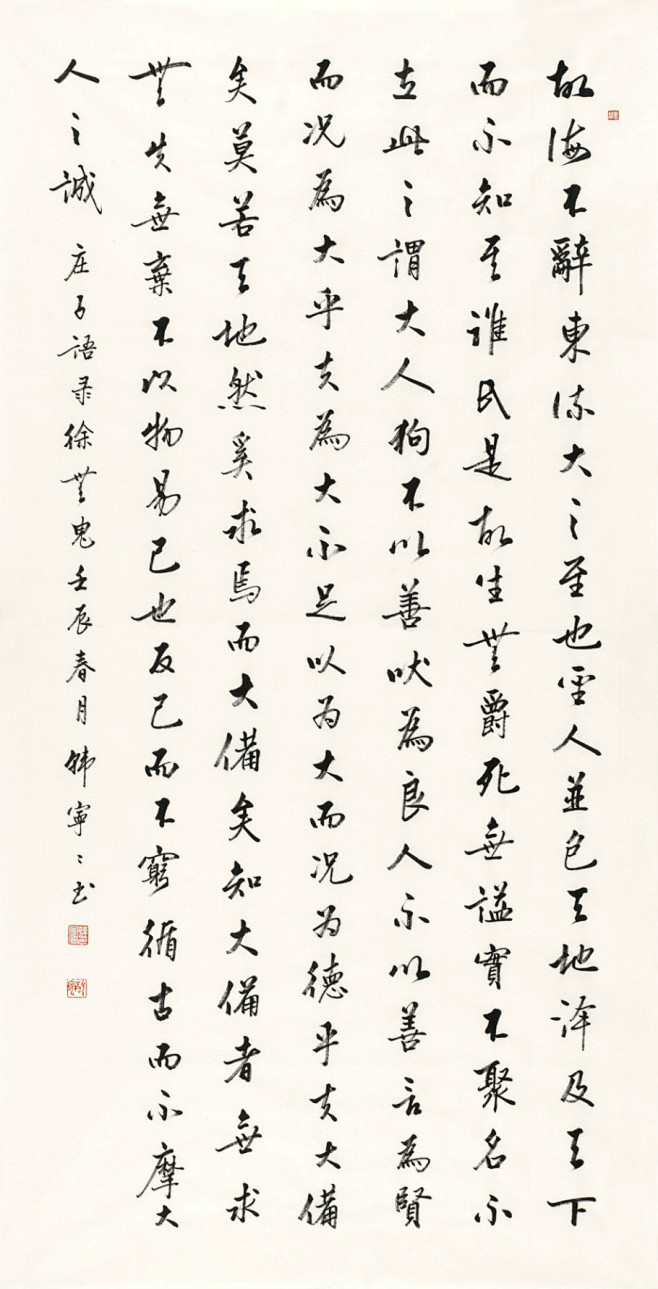 故海不辭東流大之至也聖人並包天地澤及天下
而不知其誰氏是故生無爵死無謚實不聚名不
立此之謂大人狗不以善吠為良人不以善言為賢
而況為大乎夫為大不足以為大而況為德乎夫大備
矣莫若天地然奚求焉而大備矣知大備者無求
無失無棄不以物易己也反己而不窮循古而不摩大
人之誠
庄子語录徐無鬼壬辰春月韩寧寧书